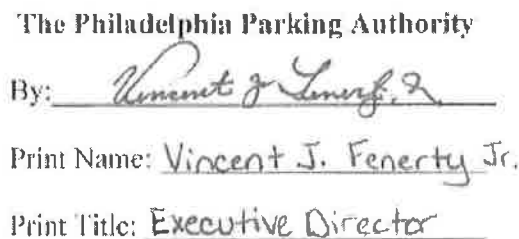 The Philadelphia Parking Authority
By: Vincent J Fenerty, Jr.
Print Name: Vincent J. Fenerty Jr.
Print Title: Executive Director